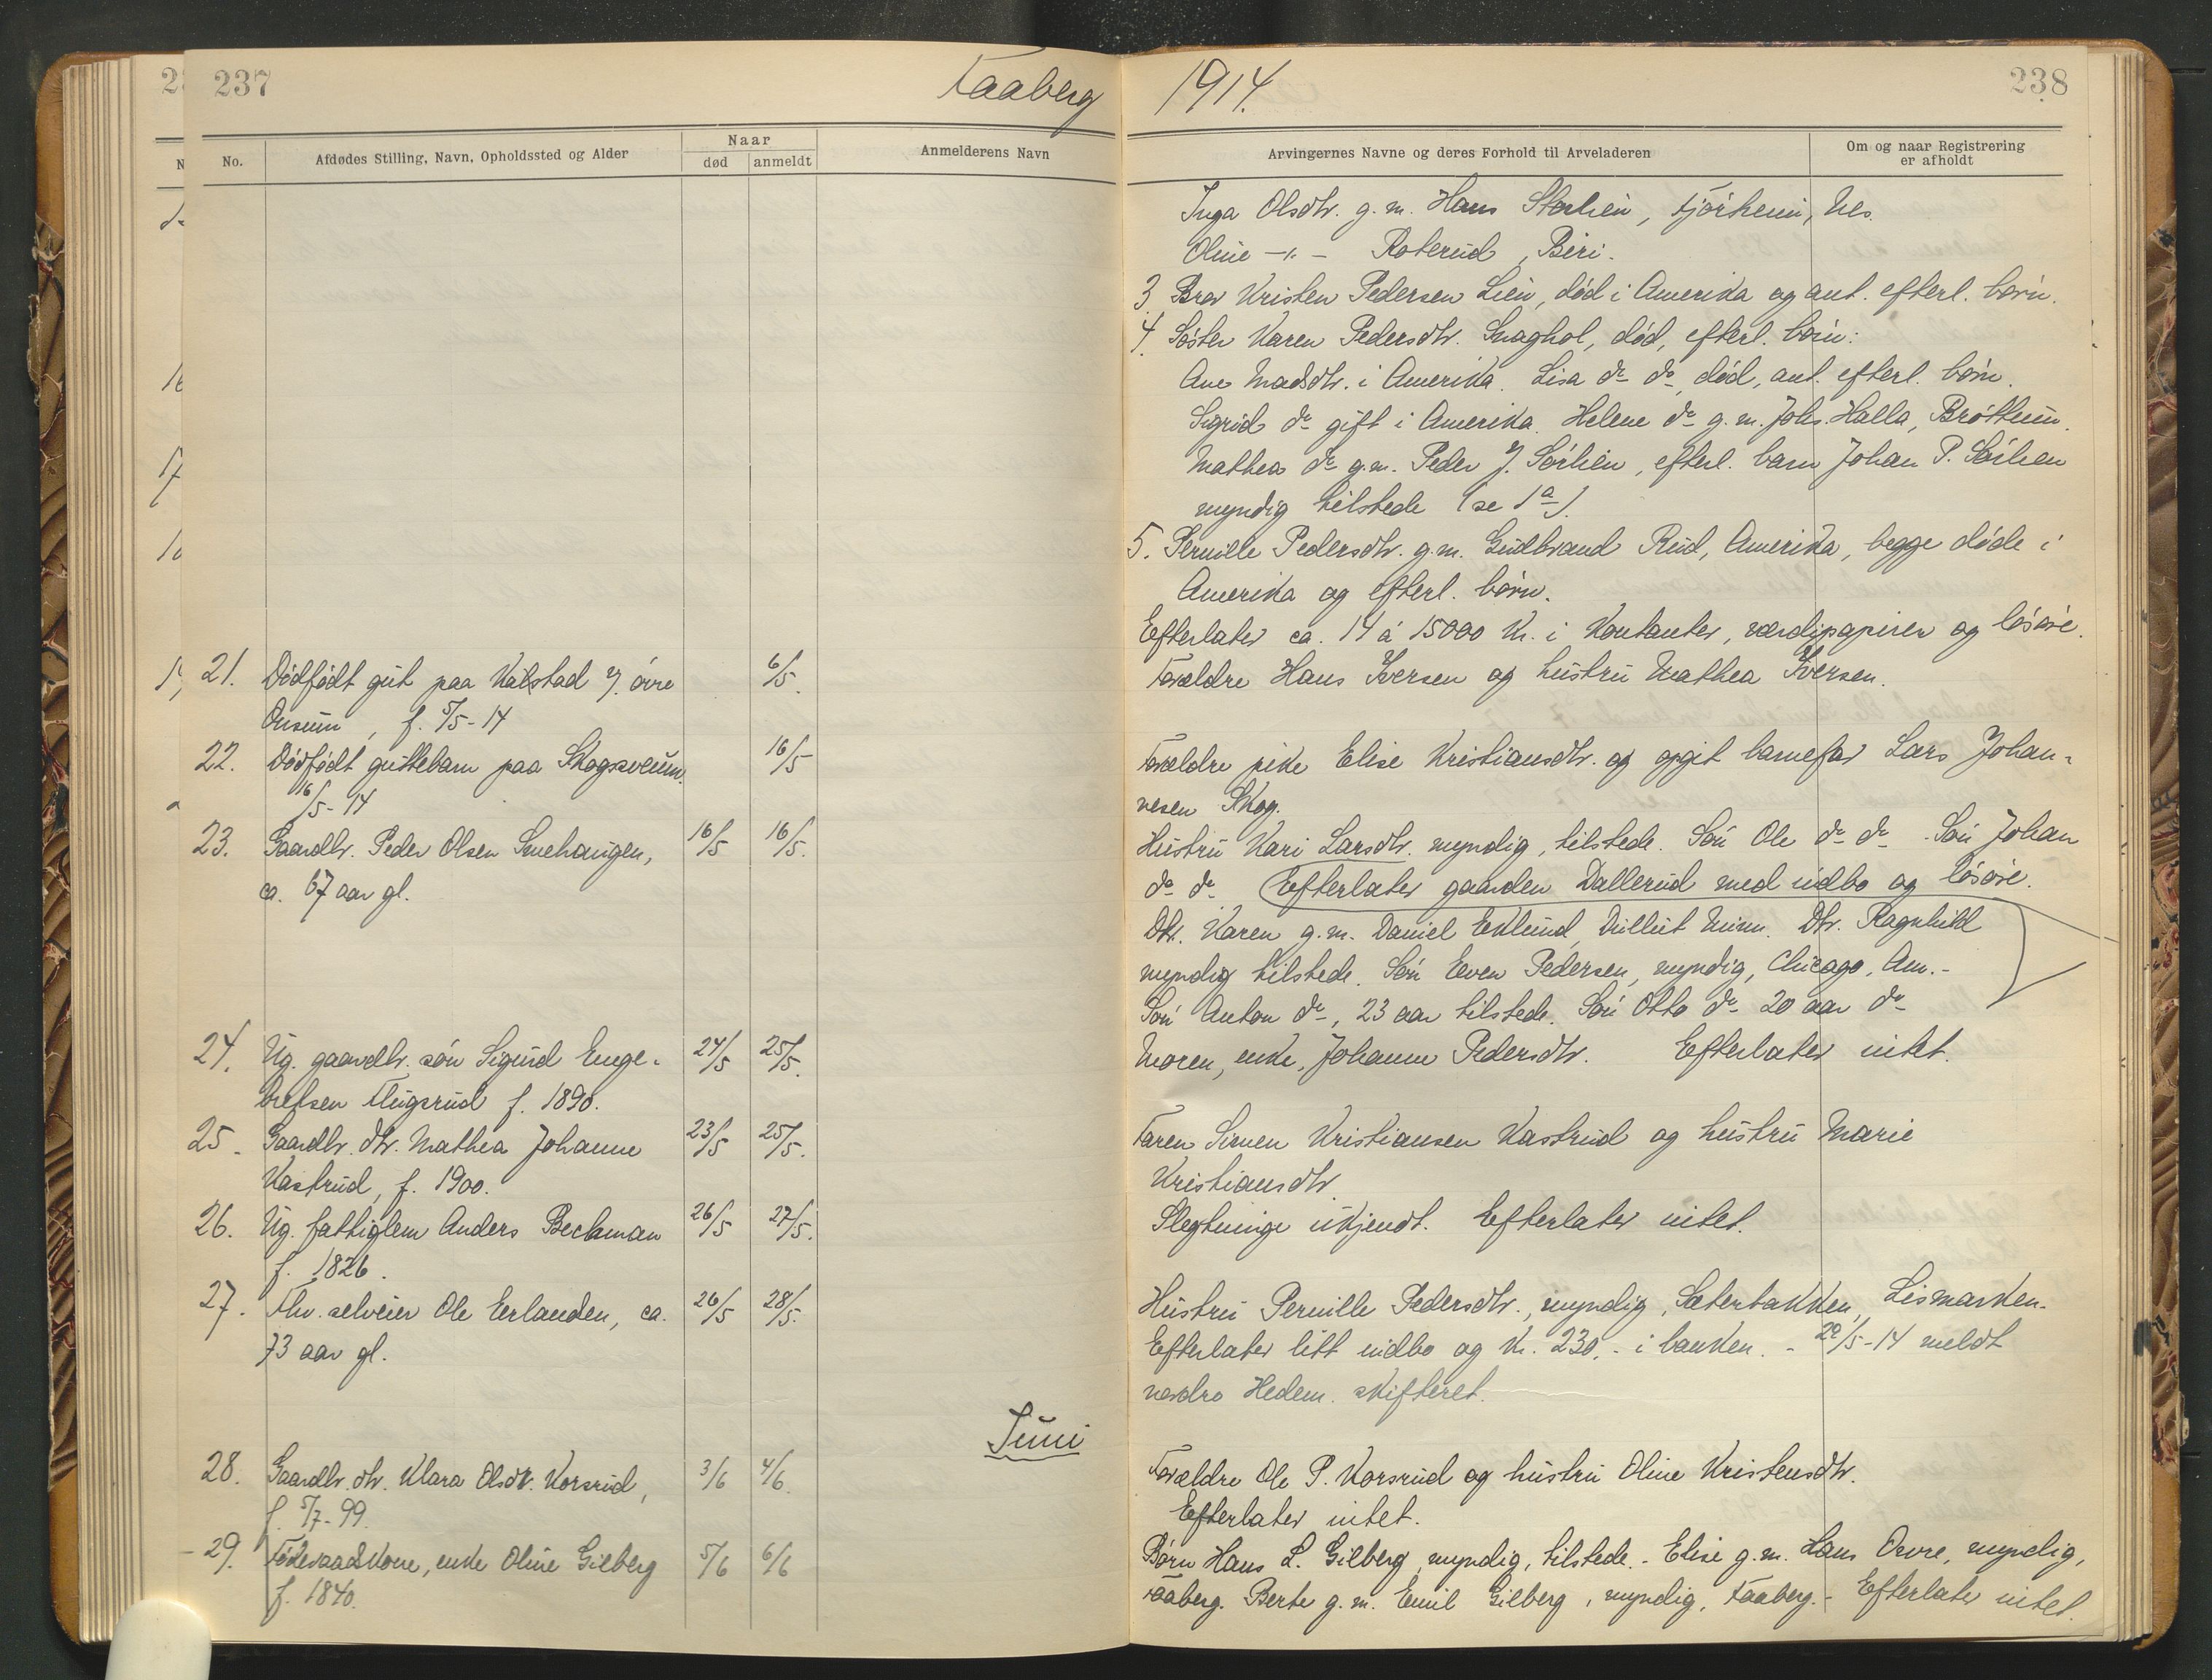 237
Faaberg
No.
Afdødes Stilling, Navn, Opholdssted og Alder
Naar
død
anmeldt
Anmelderens Navn
21. Dødfødt gut paa Kalstad u. øvre 6/5.
Onsum, f. 5/5-14
22. Dødfødt guttebarn paa Skogsveum. 16/5
16/5-14
23. Gaardbr. Peder Olsen Smehaugen, 16/5 16/5.
ca. 67 aar gl.
24. Ug. gaardbr. søn Sigurd Enge- 24/5 25/5.
bretsen Flugsrud f. 1890.
25. Gaardbr. dtr. Mathea Johanne 23/5 25/5.
Kastrud, f. 1900.
26. Ug. fattiglem Anders Beckman 26/5 27/5.
f. 1826.
27. Fhv. selveier Ole Erlanden, ca. 26/5 28/5.
73 aar gl.
Juni
28. Gaardbr. dtr. Klara Olsdtr. Korsrud, 3/6 4/6.
f. 5/7-99.
29. Føderaadskone, enke Oline Gilberg 5/6 6/6
f. 1840.
1914.
238
Arvingernes Navne og deres Forhold til Arveladeren
Om og naar Registrering
er afholdt
Inga Olsdtr. g.m. Hans Storlien, Tjørkeim, Nes.
Oline -"- Roterud, Biri.
3 Bror Kristen Pedersen Lien, død i Amerika og ant. efterl. børn.
4. Søster Karen Pedersdtr. Snaghol, død, efterl. børn:
Ane Madsdtr. i Amerika. Lisa do do, død, ant. efterl. børn.
Sigrid do gift i Amerika. Helene do g.m. Johs. Halla, Brøttum.
Mathea do g.m. Peder J. Sørlien, efterl. barn Johan P. Sørlien
myndig tilstede (se 1a).
5. Pernille Pedersdtr. g.m. Gudbrand Rud, Amerika, begge døde i
Amerika og efterl. børn.
Efterlater ca. 14 á 15000 Kr. i Kontanter, værdipapirer og løsøre.
Forældre Hans Iversen og hustru Mathea Iversen.
Forældre pike Elise Kristiansdtr. og opgit barnefar Lars Johan-
nesen Skog.
Hustru Kari Larsdtr. myndig, tilstede. Søn Ole do do. Søn Johan
do do. Efterlater gaarden Dallerud med indbo og løsøre.
Dtr. Karen g.m. Daniel Eklund, Dullut Minn. Dtr. Ragnhild
myndig tilstede. Søn Even Pedersen, myndig, Chicago, Am.-
Søn Anton do, 23 aar tilstede. Søn Otto do 20 aar do
Moren, enke, Johanne Pedersdtr. Efterlater intet.
Faren Simen Kristiansen Kastrud og hustru Marie
Kristiansdtr.
Slegtninge ukjendt. Efterlater intet.
Hustru Pernille Pedersdtr., myndig, Sæterbakken, Lismarken.
Efterlater litt indbo og Kr. 230.- i banken. - 29/5-14 meldt
nordre Hedem. skifteret.
Forældre Ole P. Korsrud og hustru Oline Kristensdtr.
Efterlater intet.
Børn Hans L. Gilberg, myndig, tilstede. - Elise g.m. Hans Owre, myndig,
Faaberg. Berte g.m. Emil Gilberg, myndig, Faaberg. - Efterlater intet.